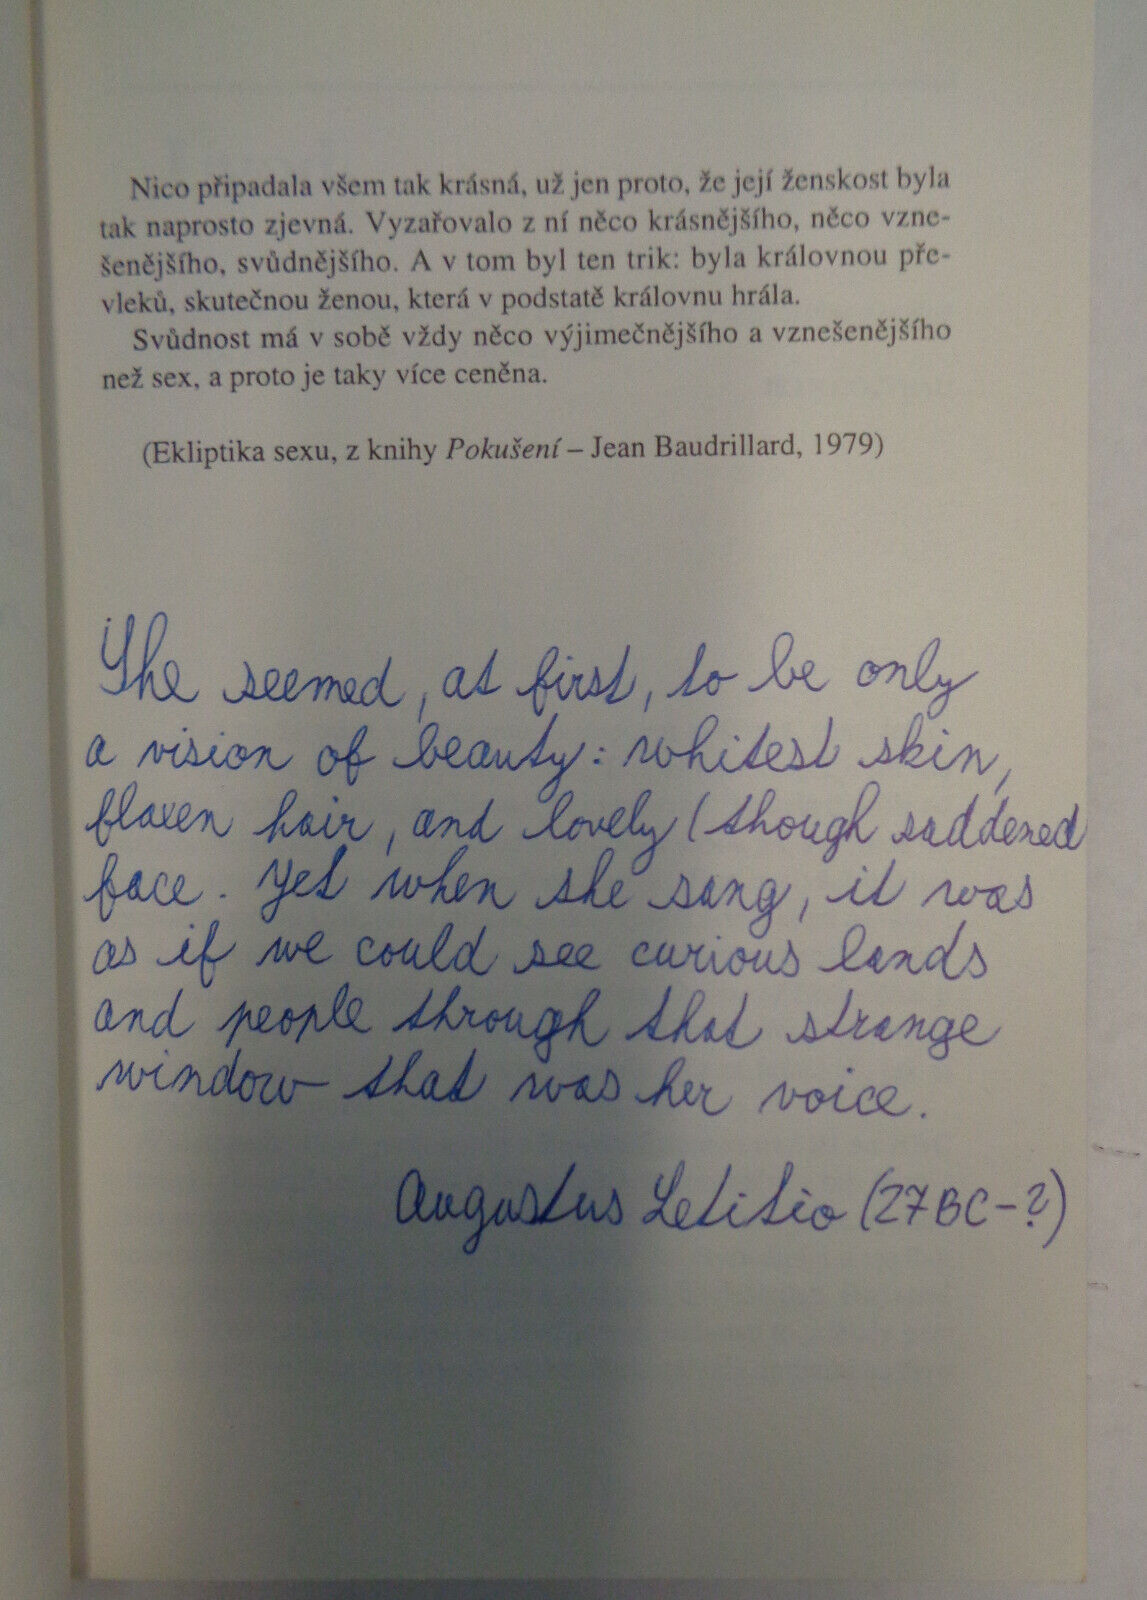 Nico připadala všem tak krásná, už jen proto, že její ženskost byla
tak naprosto zjevná. Vyzařovalo z ní něco krásnějšího, něco vzne-
šenějšího, svůdnějšího. A v tom byl ten trik: byla královnou pře-
vleků, skutečnou ženou, která v podstatě královnu hrála.
Svůdnost má v sobě vždy něco výjimečnějšího a vznešenějšího
než sex, a proto je taky více ceněna.
(Ekliptika sexu, z knihy Pokušení – Jean Baudrillard, 1979)
She seemed, at first, to be only
a vision of beauty: whitest skin,
flaxen hair, and lovely (though saddened
face. Yet when she sang, it was
as if we could see curious lands
and people through that strange
window that was her voice.
Augustus Letitio (27BC-?)